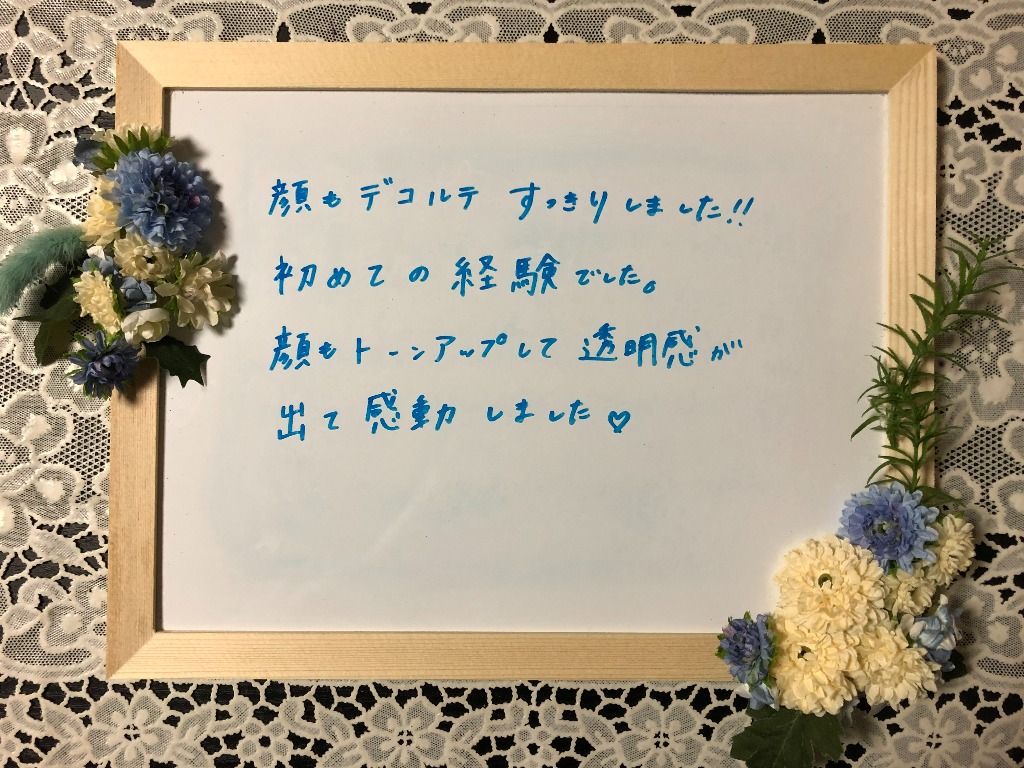 顔もデコルテ すっきりしました!!
初めての経験でした。
顔もトーンアップして透明感が
出て感動しました♡